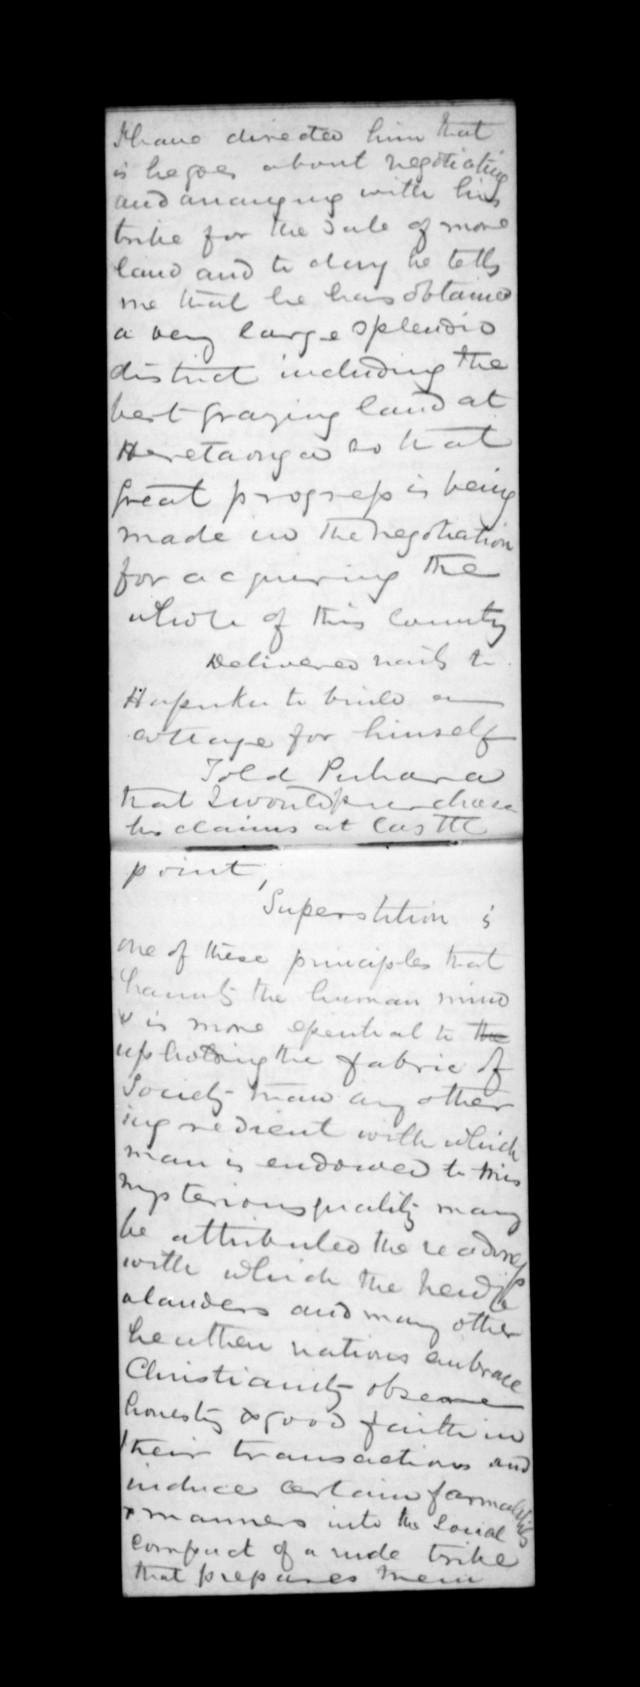 I have directed him that
is he goes about negotiating
and arranging with his
tribe for the sale of more
land and to day he tells
me that he has obtained
a very large splendid
district including the
best grazing land at
Heretaonga so that
great progress is being
made in the negotiation
for acquiring the
whole of this country
Delivered nails to
Hapuku to build a
cottage for himself
Told Puhara
that I would purchase
his claims at Castle
point,
Superstition is
one of these principles that
haunts the human mind
& is more essential to the
upholding the fabric of
Society than any other
ingredient with which
man is endowed to this
mysterious quality may
be attributed the readiness
with which the New Ze
alanders and many other
heathen nations embrace
Christianity observe
honesty & good faith in
their transactions and
induce certain formalities
& manners into the Social
compact of a rude tribe
that prepares them